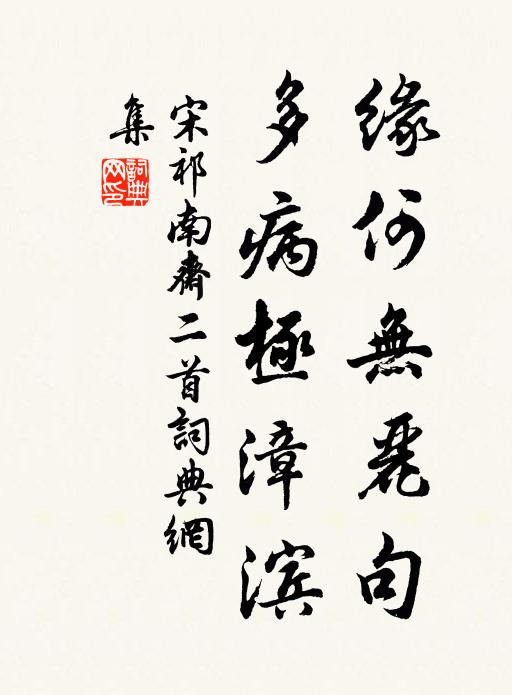 緣何無麗句
多病極漳滨
宋祁南齋二首詞典網
集
詞典
网印